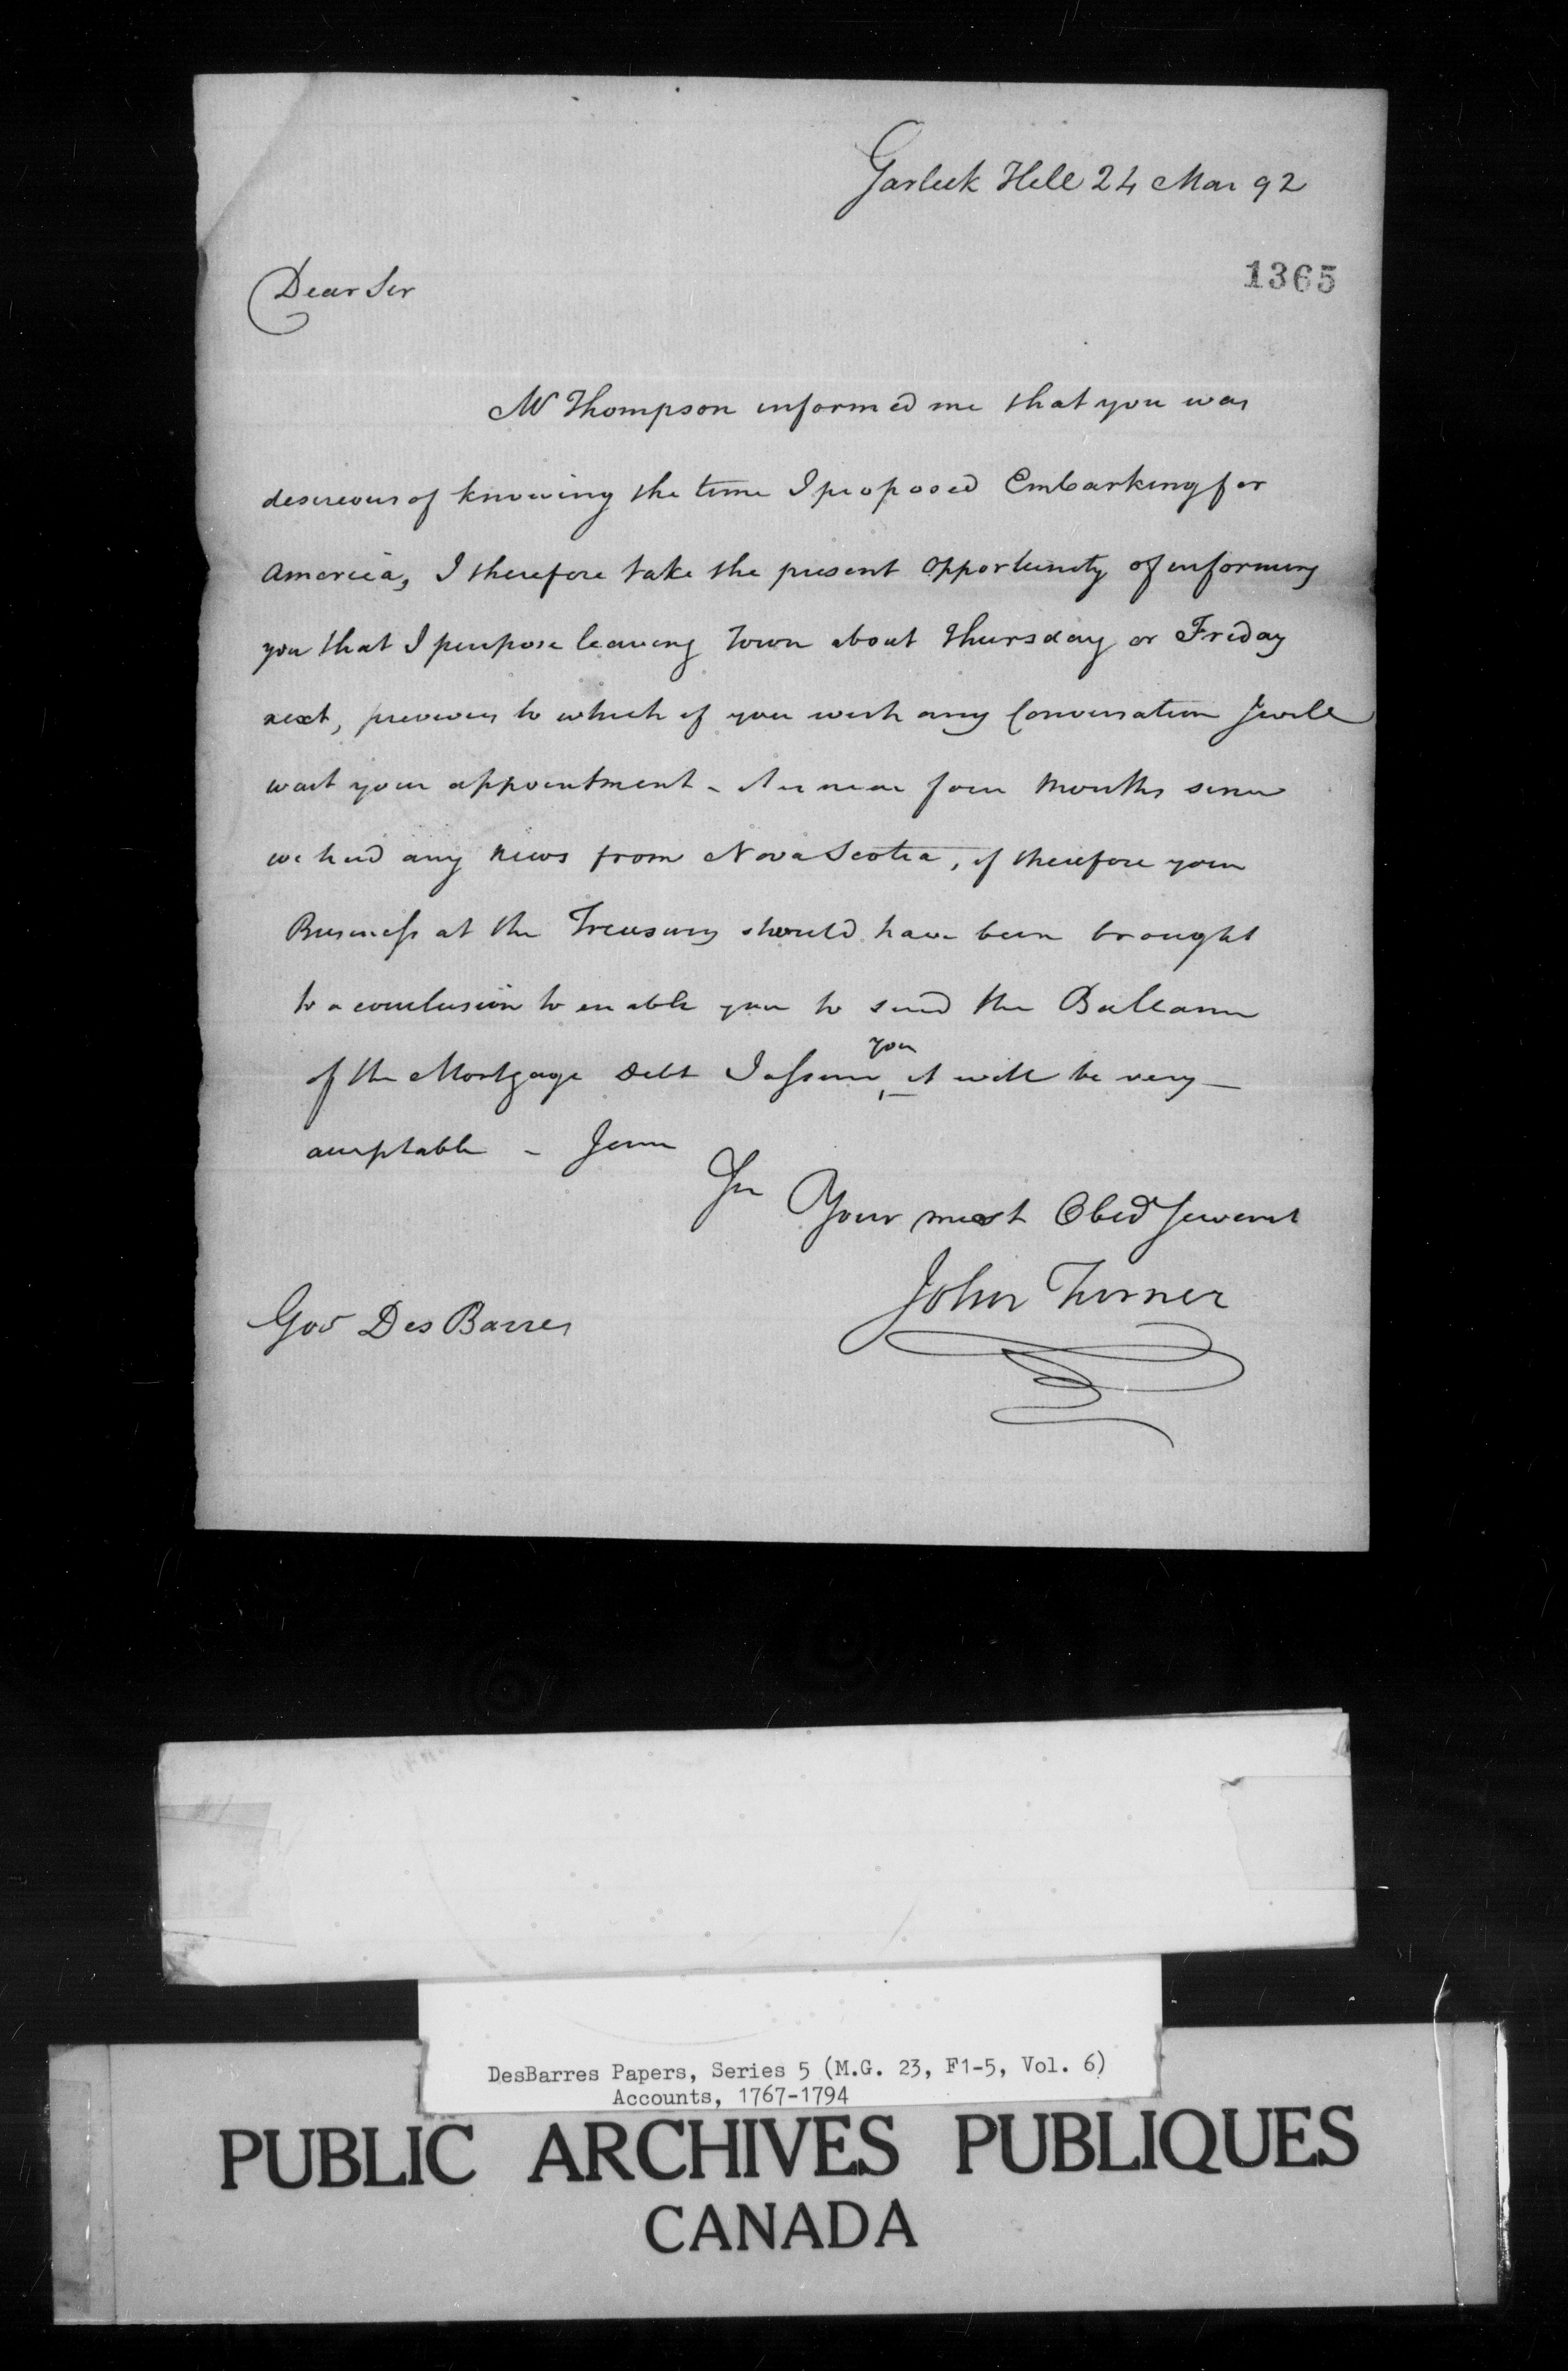 Garlick Hill 24 Mar 92
1365
Dear Sir
Mr Thompson informed me that you was
desireous of knowing the time I proposed Embarking for
America, I therefore take the present opportunity of informing
you that I purpose leaving Town about Thursday or Friday
next, previous to which if you wish any Conversation I will
wait your appointment - near four Months since
we had any news from Nova Scotia, if therefore your
Business at the Treasury should have been brought
to a conclusion to enable you to send the Ballance
of the Mortgage Debt I assure you it will be very
acceptable - I am
Sir Your most Obed Servant
John Turner
Gov Des Barres
DesBarres Papers, Series 5 (M.G. 23, F1-5, Vol. 6)
Accounts, 1767-1794
PUBLIC ARCHIVES PUBLIQUES
CANADA